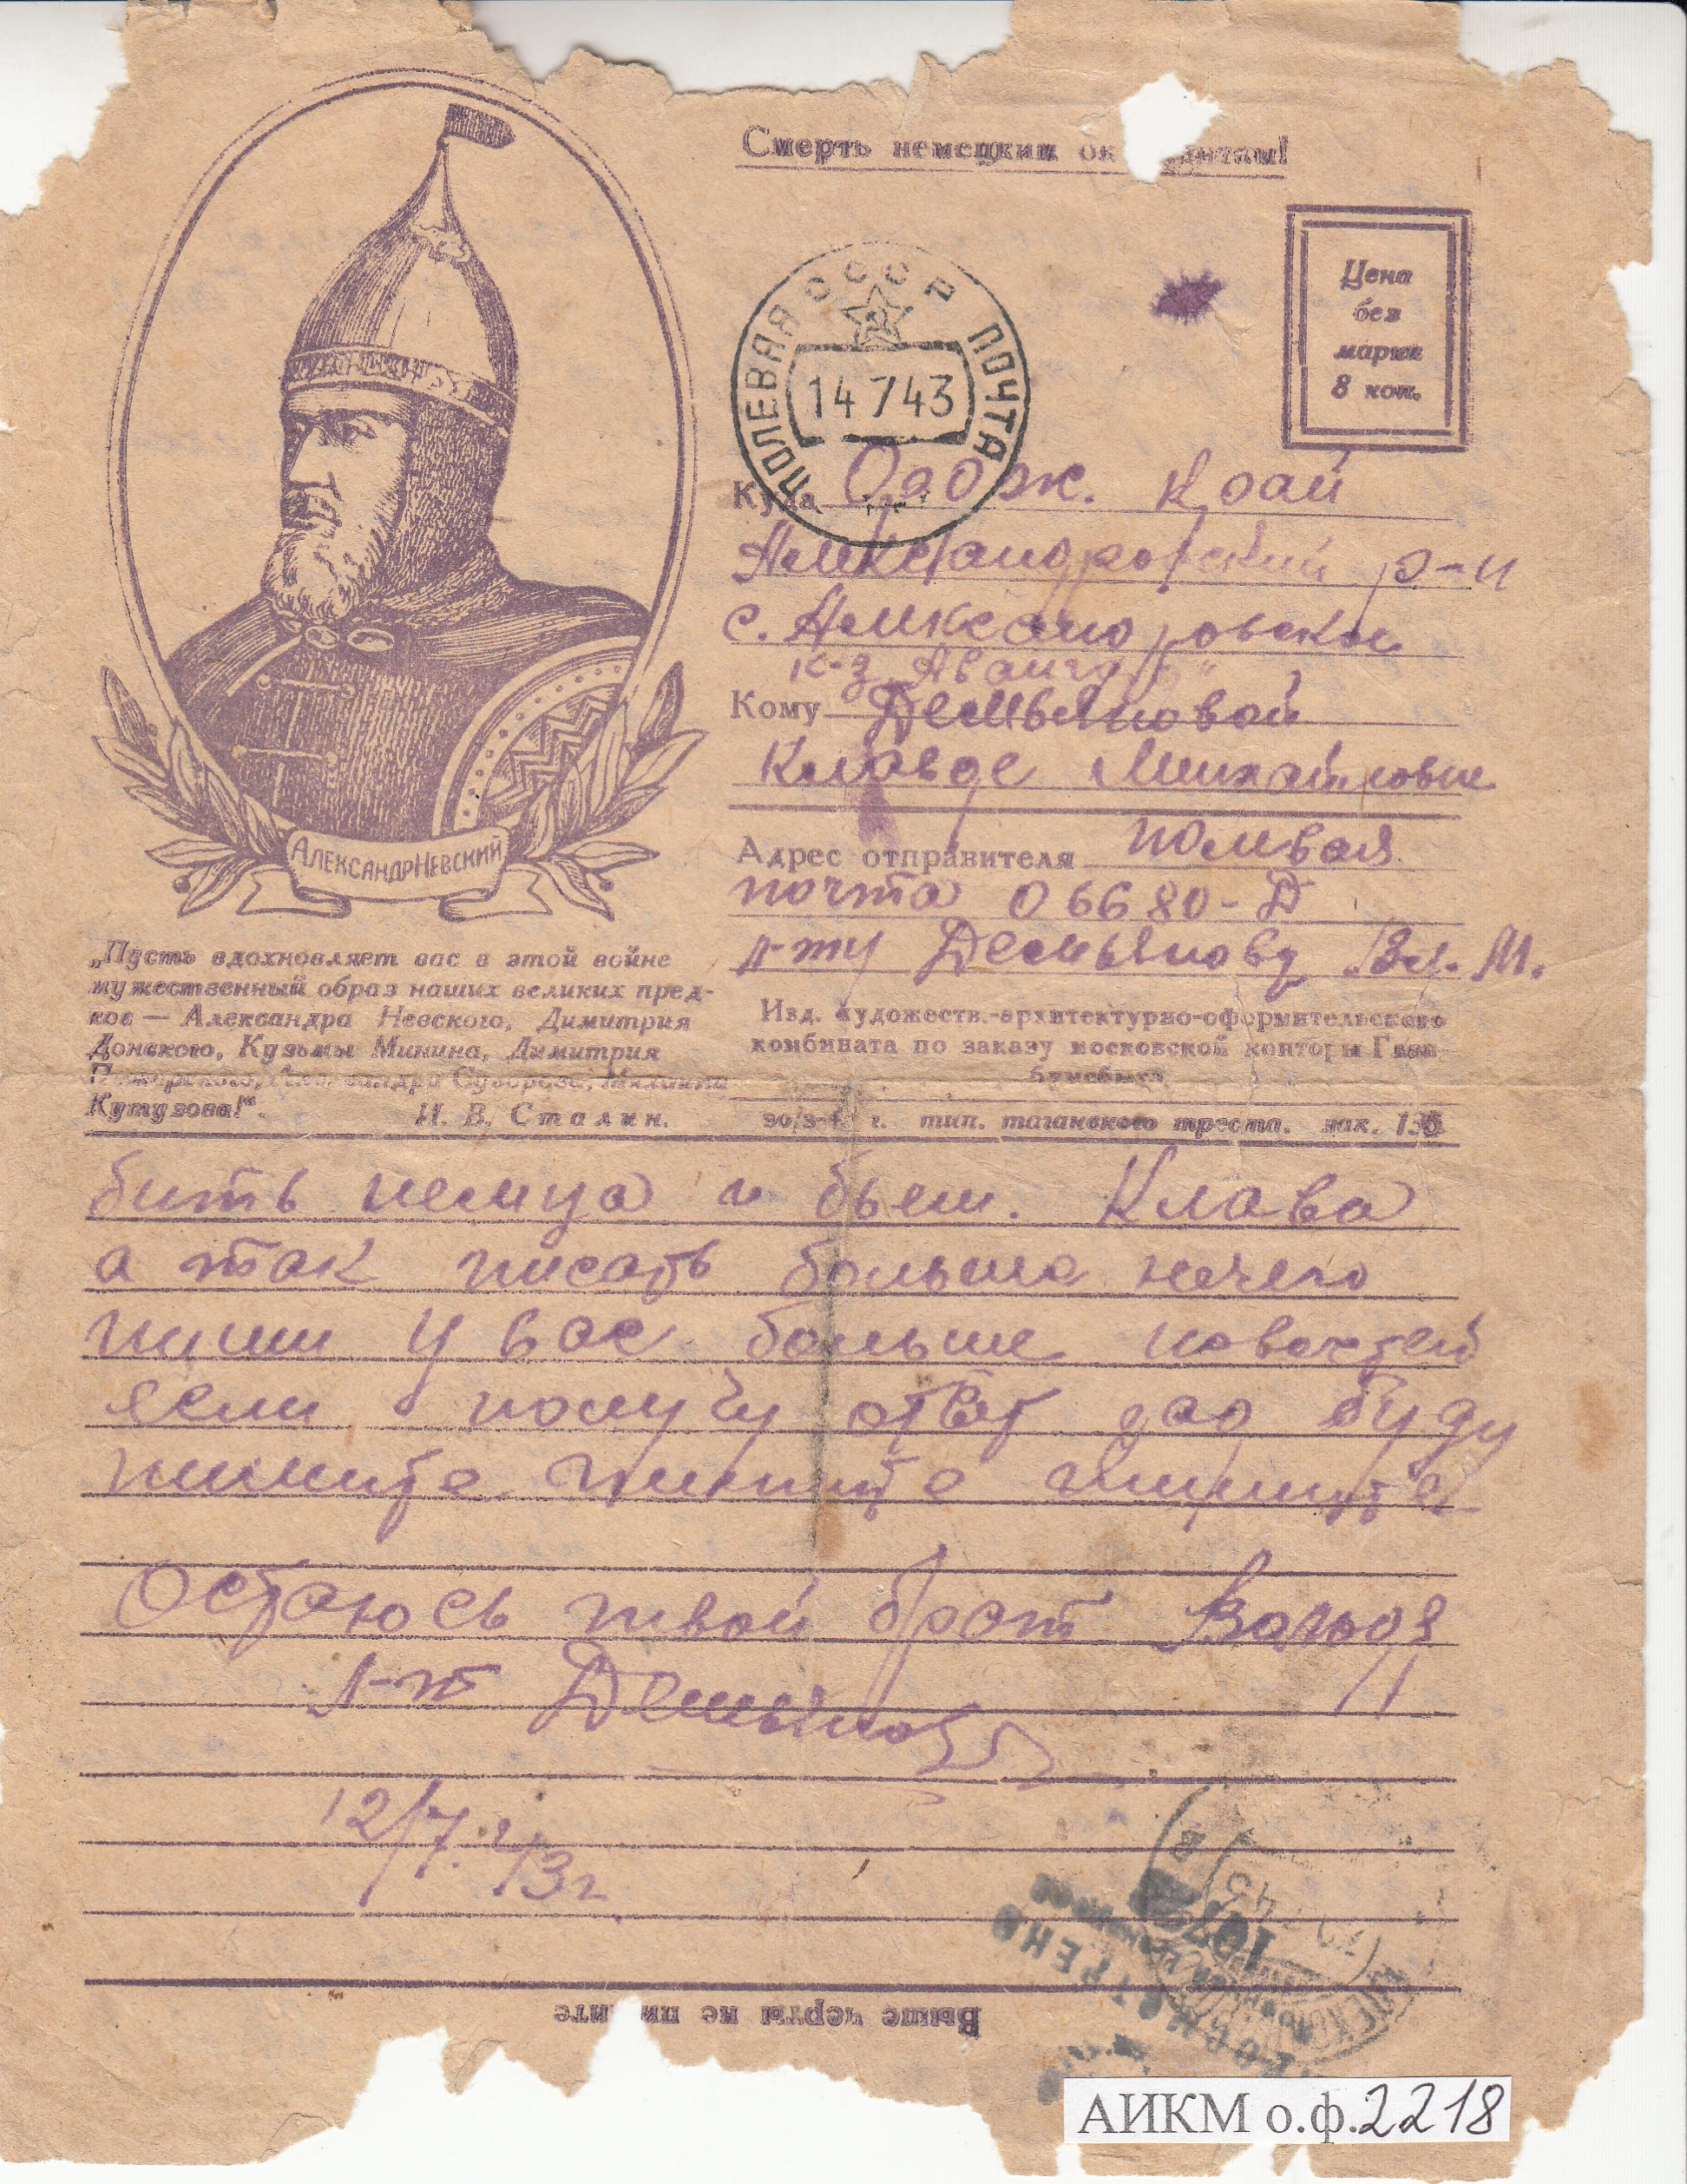 Смерть немецким ок антам!
Цена
без
марки
8 коп.
СССР
ПОЛЕВАЯ ПОЧТА
14 7 43
Куда Ордж. край
Александровский р-н
с. Александровское
к-з „Авангард“
Кому Демьяновой
Клавде Михайловне
Адрес отправителя полевая
почта 06680-Д
л-ту Демьянову Вл. М.
АЛЕКСАНДР НЕВСКИЙ
„Пусть вдохновляет вас в этой войне
мужественный образ наших великих пред-
ков — Александра Невского, Димитрия
Донского, Кузьмы Минина, Димитрия
Пожарского, Александра Суворова, Михаила
Кутузова!“.
И. В. Сталин.
Изд. художеств.-архитектурно-оформительского
комбината по заказу московской конторы Глав-
бумсбыта
тип. таганского треста. зак.
бить немца и бьем. Клава
а так писать больше нечего
пиши у вас больше новостей
если получу ответ рад буду
пишите пишите пишите
Остаюсь твой брат Володя
л-т Демьянов
12/7. 43г
Выше черты не пишите
ПРОСМОТРЕНО
АИКМ о.ф.2218